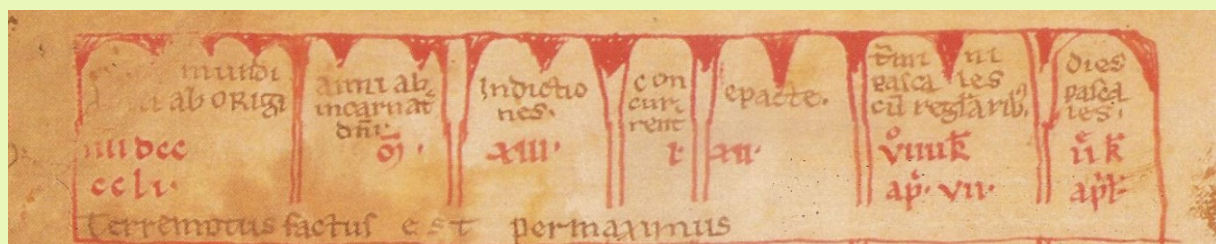 mundi
ab ORigi
iiii dcc
ccli·
anni ab
incarnat
dn̄i·
ꝏ ·
Indictio
nes·
xiii·
con
cur
rent
i·
epacte·
xii·
t̄mi ni
pasca les
cū regłarib;
viiii k̄
ap̄· vii·
dies
pasca
les·
ii k̄
apł·
Terremotus factus est permaximus